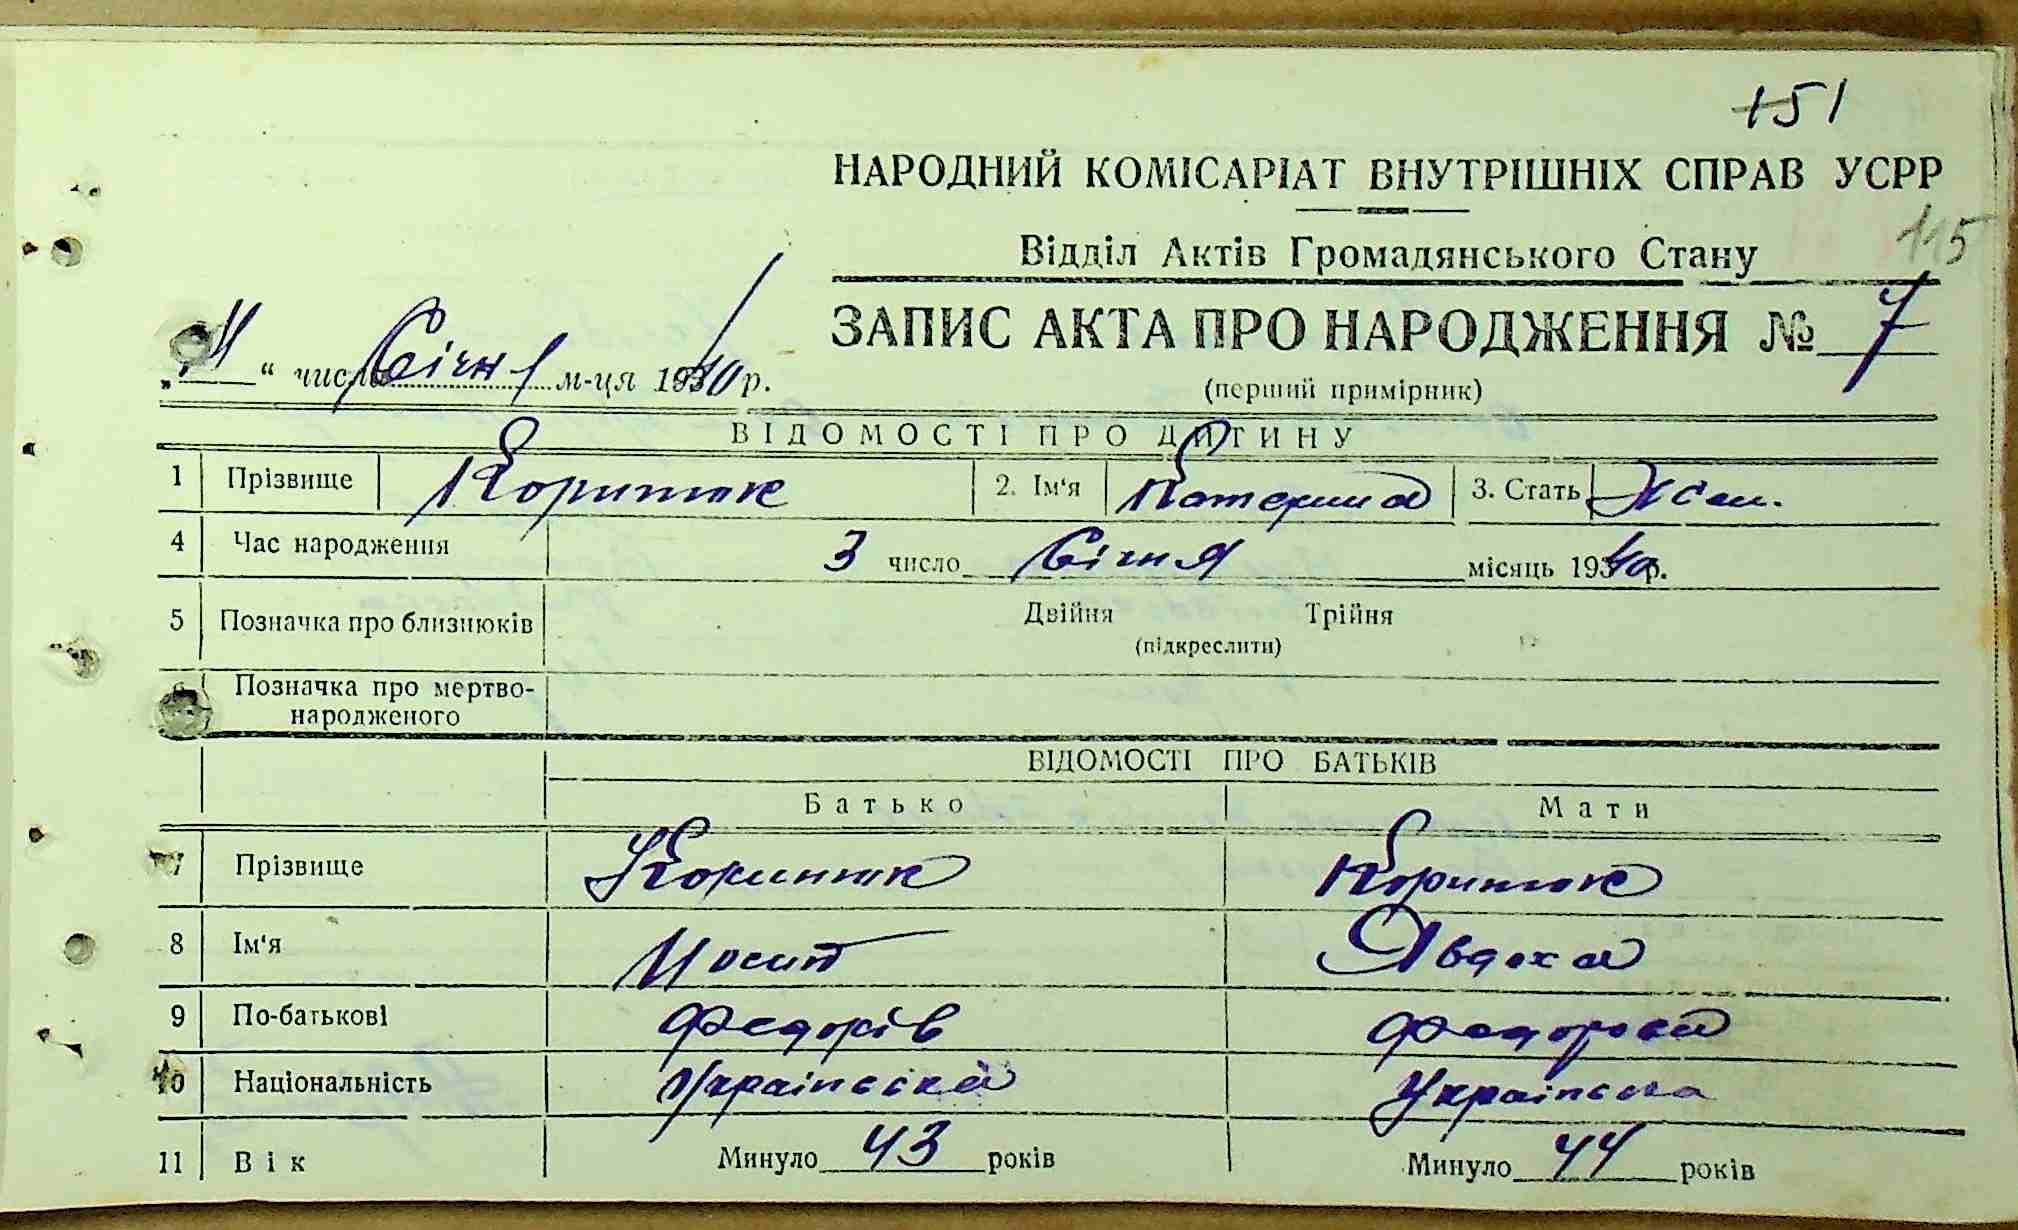 151
НАРОДНИЙ КОМІСАРІАТ ВНУТРІШНІХ СПРАВ УСРР
115
Відділ Актів Громадянського Стану
ЗАПИС АКТА ПРО НАРОДЖЕННЯ № 7
„ 4 “ число Січня м-ця 1940 р.
(перший примірник)
ВІДОМОСТІ ПРО ДИТИНУ
1 Прізвище Коритюк 2. Ім'я Катерина 3. Стать Жен.
4 Час народження 3 число Січня місяць 1940 р.
5 Позначка про близнюків Двійня Трійня
(підкреслити)
6 Позначка про мертво-
народженого
ВІДОМОСТІ ПРО БАТЬКІВ
Батько Мати
7 Прізвище Коритюк Коритюк
8 Ім'я Йосип Явдоха
9 По-батькові Федорів Федорова
10 Національність Українська Українська
11 Вік Минуло 43 років Минуло 44 років